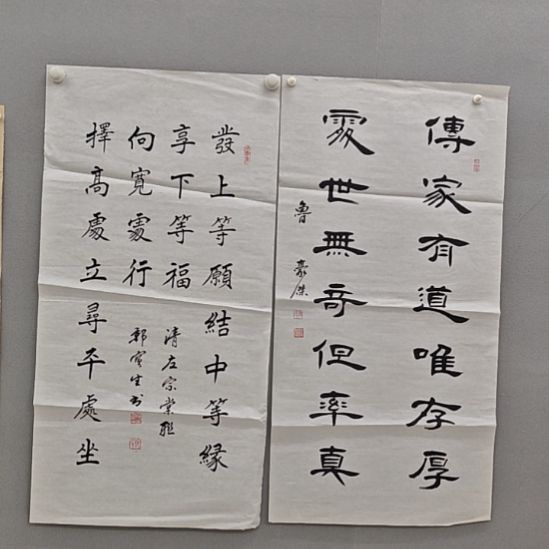 傳家有道唯存厚
處世無奇但率真
魯豪傑
發上等願結中等緣
享下等福
擇高處立尋平處坐
向寬處行
清左宗棠聯